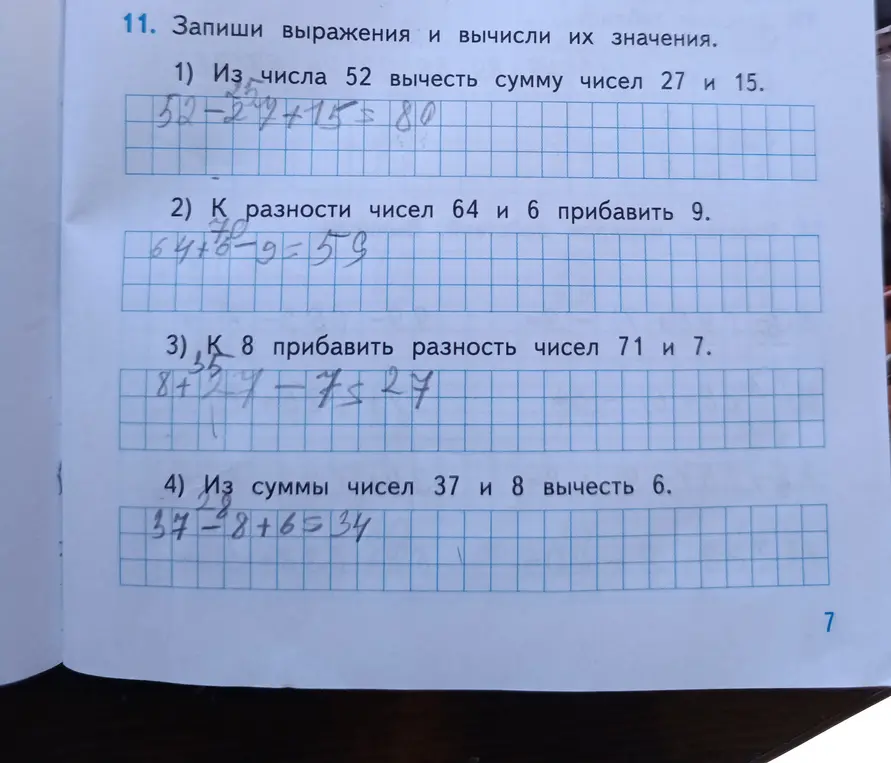 11. Запиши выражения и вычисли их значения.
1) Из числа 52 вычесть сумму чисел 27 и 15.
52-27+15=80
2) К разности чисел 64 и 6 прибавить 9.
70
64+6-9=59
3) К 8 прибавить разность чисел 71 и 7.
35
8+27-7=27
4) Из суммы чисел 37 и 8 вычесть 6.
28
37-8+6=34
7